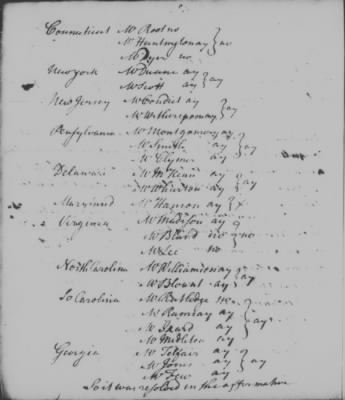 Connecticut Mr Root no
Mr Huntington ay } no
Mr Dyer no
New York Mr Duane ay } ay
Mr Scott ay
New Jersey Mr Condict ay } ay
Mr Witherspoon ay
Pensylvania Mr Montgomery ay
Mr Smith ay } ay
Mr Clymer ay
Delaware Mr McKean ay } ay
Mr Wharton ay
Maryland Mr Hanson ay } +
Virginia Mr Madison ay
Mr Bland no } no
Mr Lee no
North Carolina Mr Williamson ay } ay
Mr Blount ay
So Carolina Mr Rutledge no
Mr Ramsay ay } ay
Mr Izard ay
Mr Midleton ay
Georgia Mr Telfair ay
Mr Jones ay } ay
Mr Few ay
So it was resolved in the affirmative